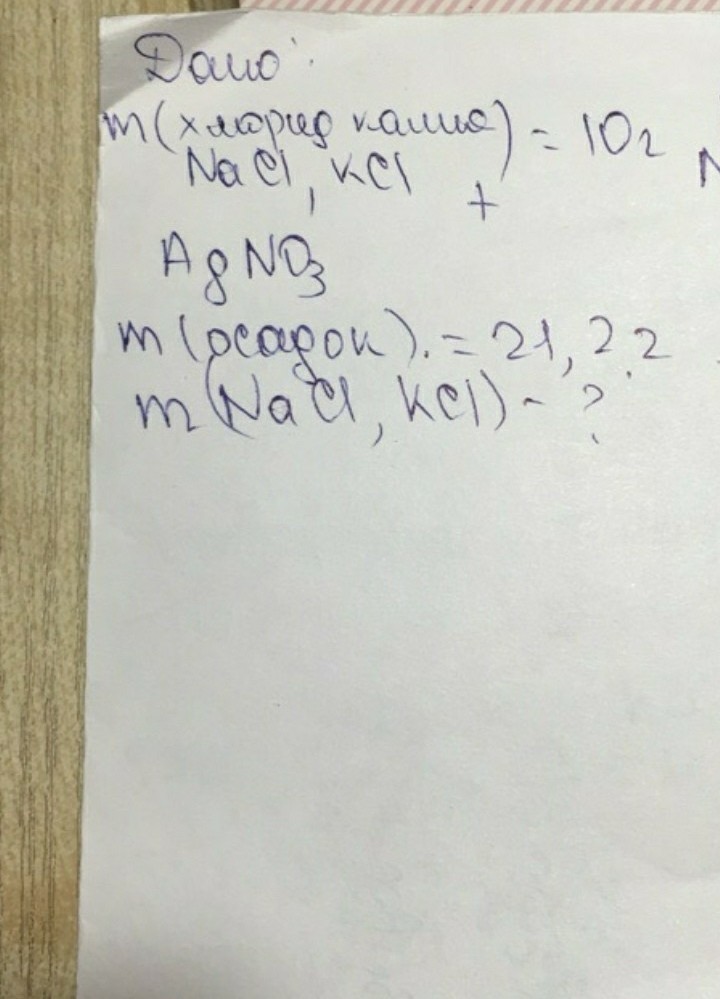 Дано:
m(хлорид калия) = 10г
NaCl, KCl +
N
AgNO3
m(осадок). = 21,2г
m(NaCl, KCl) - ?